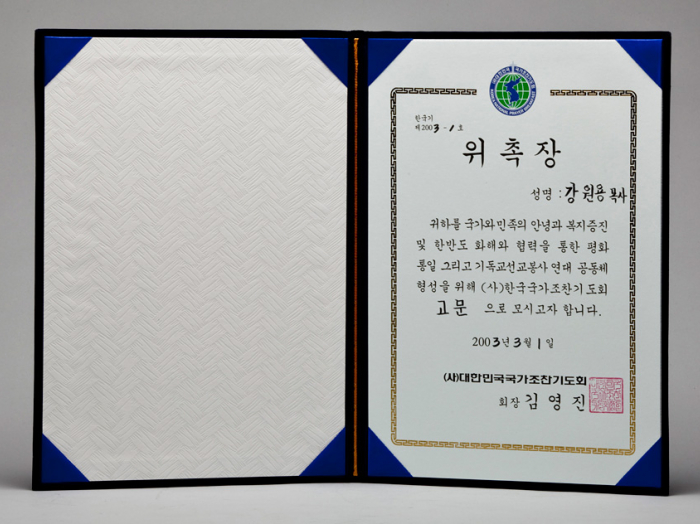 한국기
제2003-1호
위촉장
성명 : 강원용 목사
귀하를 국가와 민족의 안녕과 복지증진
및 한반도 화해와 협력을 통한 평화
통일 그리고 기독교선교봉사 연대 공동체
형성을 위해 (사)한국국가조찬기도회
고문 으로 모시고자 합니다.
2003년 3월 1일
(사)대한민국국가조찬기도회
회장 김영진